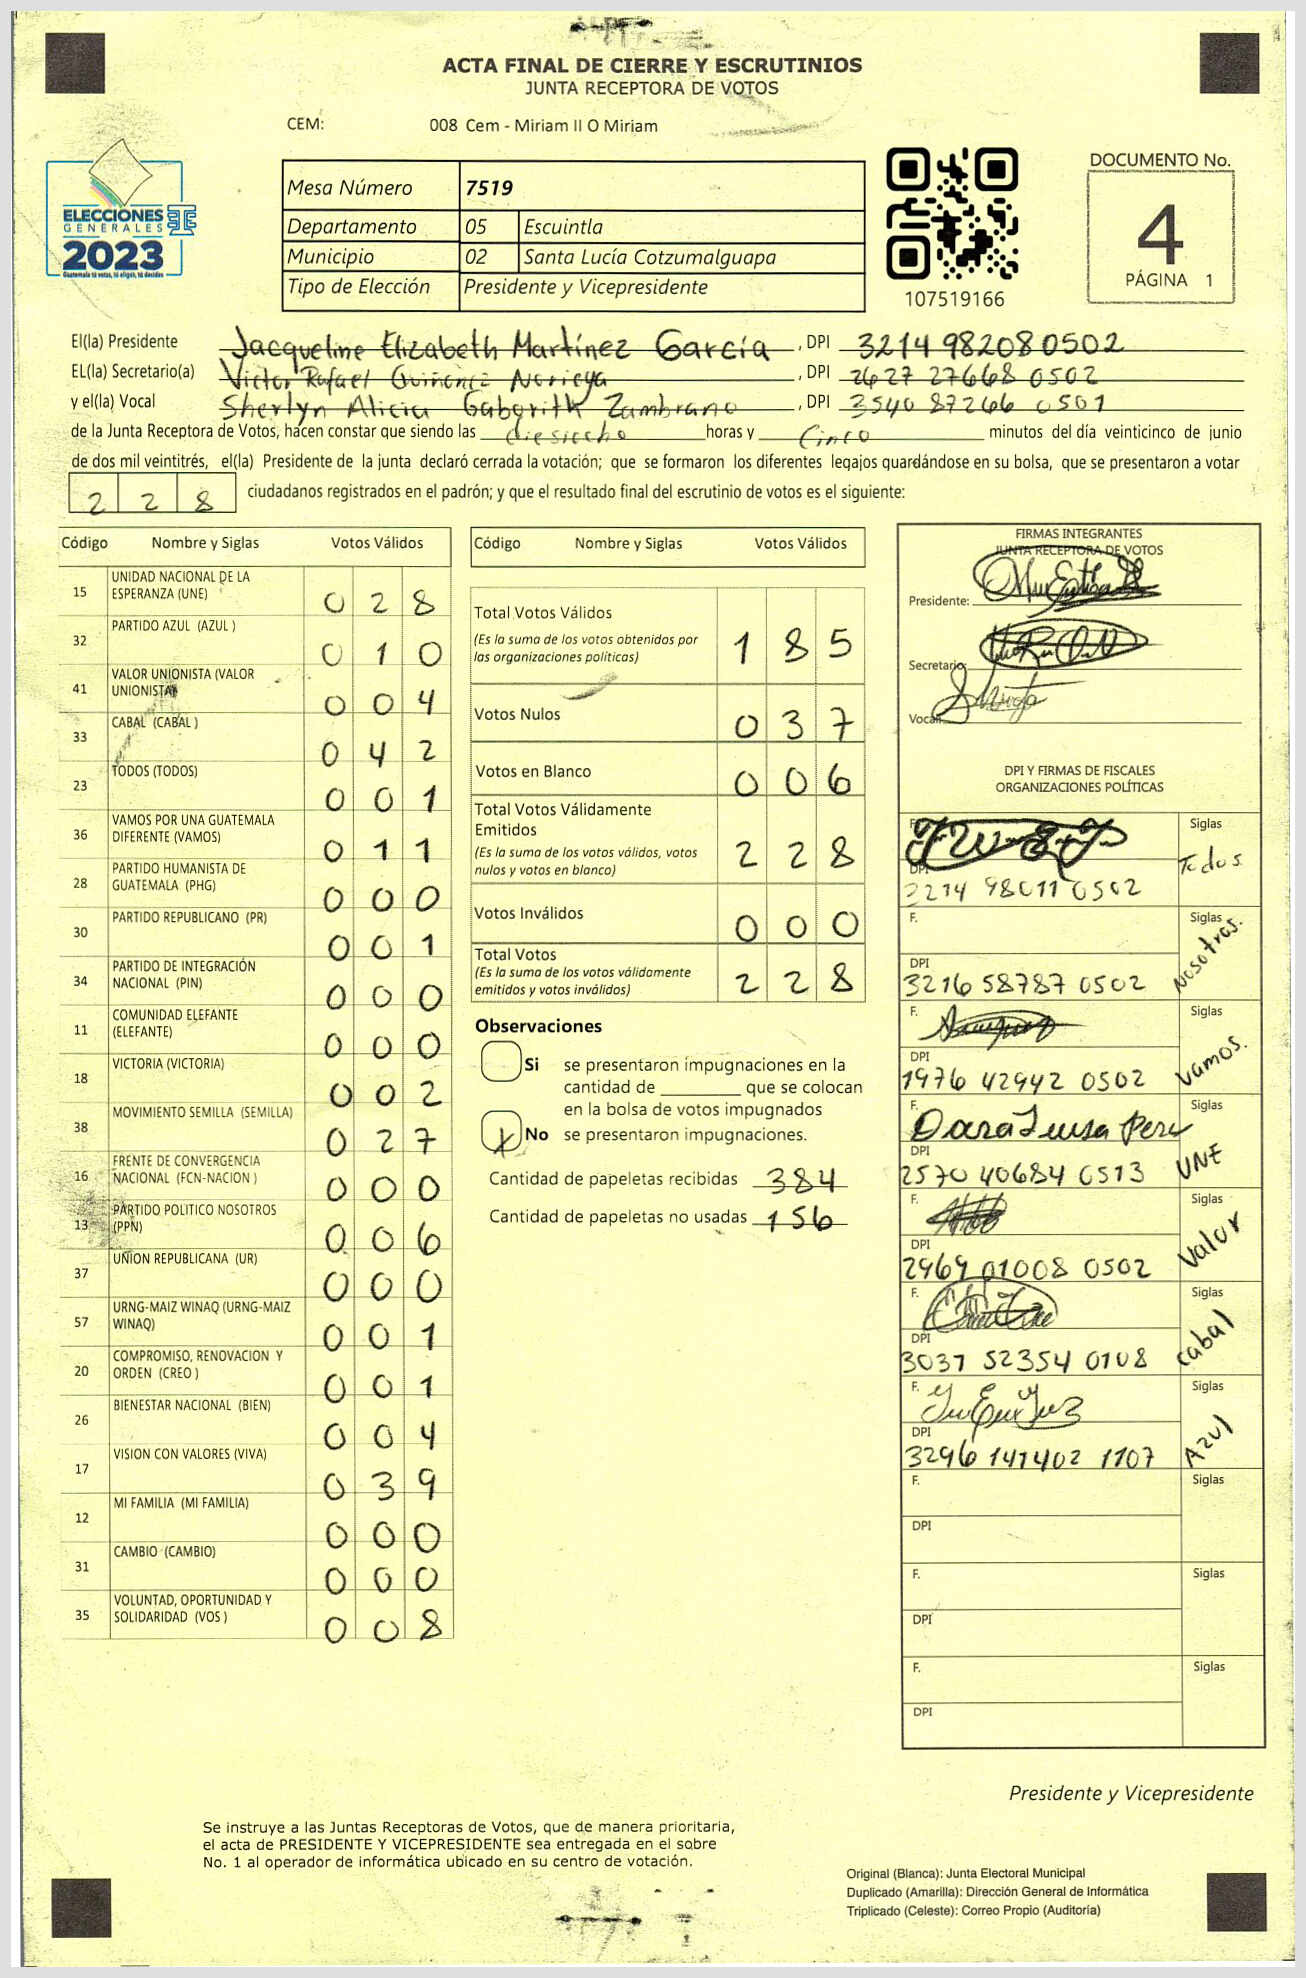 ACTA FINAL DE CIERRE Y ESCRUTINIOS
JUNTA RECEPTORA DE VOTOS
CEM: 008 Cem - Miriam II O Miriam
ELECCIONES
GENERALES
2023
Guatemala tú votas, tú eliges, tú decides
Mesa Número 7519
Departamento 05 Escuintla
Municipio 02 Santa Lucía Cotzumalguapa
Tipo de Elección Presidente y Vicepresidente
107519166
DOCUMENTO No.
4
PÁGINA 1
El(la) Presidente Jacqueline Elizabeth Martínez García , DPI 3214 98208 0502
EL(la) Secretario(a) Victor Rafael Quiñonez Noriega , DPI 2627 27668 0502
y el(la) Vocal Sherlyn Alicia Gaborith Zambrano , DPI 3540 87266 0501
de la Junta Receptora de Votos, hacen constar que siendo las diesiocho horas y cinco minutos del día veinticinco de junio
de dos mil veintitrés, el(la) Presidente de la junta declaró cerrada la votación; que se formaron los diferentes legajos guardándose en su bolsa, que se presentaron a votar
228 ciudadanos registrados en el padrón; y que el resultado final del escrutinio de votos es el siguiente:
Código Nombre y Siglas Votos Válidos
15 UNIDAD NACIONAL DE LA ESPERANZA (UNE) 028
32 PARTIDO AZUL (AZUL ) 010
41 VALOR UNIONISTA (VALOR UNIONISTA) 004
33 CABAL (CABAL ) 042
23 TODOS (TODOS) 001
36 VAMOS POR UNA GUATEMALA DIFERENTE (VAMOS) 011
28 PARTIDO HUMANISTA DE GUATEMALA (PHG) 000
30 PARTIDO REPUBLICANO (PR) 001
34 PARTIDO DE INTEGRACIÓN NACIONAL (PIN) 000
11 COMUNIDAD ELEFANTE (ELEFANTE) 000
18 VICTORIA (VICTORIA) 002
38 MOVIMIENTO SEMILLA (SEMILLA) 027
16 FRENTE DE CONVERGENCIA NACIONAL (FCN-NACION ) 000
13 PARTIDO POLITICO NOSOTROS (PPN) 006
37 UNION REPUBLICANA (UR) 000
57 URNG-MAIZ WINAQ (URNG-MAIZ WINAQ) 001
20 COMPROMISO, RENOVACION Y ORDEN (CREO ) 001
26 BIENESTAR NACIONAL (BIEN) 004
17 VISION CON VALORES (VIVA) 039
12 MI FAMILIA (MI FAMILIA) 000
31 CAMBIO (CAMBIO) 000
35 VOLUNTAD, OPORTUNIDAD Y SOLIDARIDAD (VOS ) 008
Código Nombre y Siglas Votos Válidos
Total Votos Válidos 185
(Es la suma de los votos obtenidos por
las organizaciones políticas)
Votos Nulos 037
Votos en Blanco 006
Total Votos Válidamente
Emitidos 228
(Es la suma de los votos válidos, votos
nulos y votos en blanco)
Votos Inválidos 000
Total Votos 228
(Es la suma de los votos válidamente
emitidos y votos inválidos)
Observaciones
Si se presentaron impugnaciones en la
cantidad de ________ que se colocan
en la bolsa de votos impugnados
X No se presentaron impugnaciones.
Cantidad de papeletas recibidas 384
Cantidad de papeletas no usadas 156
FIRMAS INTEGRANTES
JUNTA RECEPTORA DE VOTOS
Presidente:
Secretario:
Vocal:
DPI Y FIRMAS DE FISCALES
ORGANIZACIONES POLÍTICAS
F. Siglas Todos
DPI 2214 98011 0502
F. Siglas Nosotros.
DPI 3216 58787 0502
F. Siglas Vamos.
DPI 1976 42942 0502
F. Siglas UNE
DPI 2570 40684 0513
F. Siglas Valor
DPI 2969 01008 0502
F. Siglas Cabal
DPI 3037 52354 0108
F. Siglas Azul
DPI 3296 141402 1107
F. Siglas
DPI
F. Siglas
DPI
F. Siglas
DPI
Presidente y Vicepresidente
Se instruye a las Juntas Receptoras de Votos, que de manera prioritaria,
el acta de PRESIDENTE Y VICEPRESIDENTE sea entregada en el sobre
No. 1 al operador de informática ubicado en su centro de votación.
Original (Blanca): Junta Electoral Municipal
Duplicado (Amarilla): Dirección General de Informática
Triplicado (Celeste): Correo Propio (Auditoría)